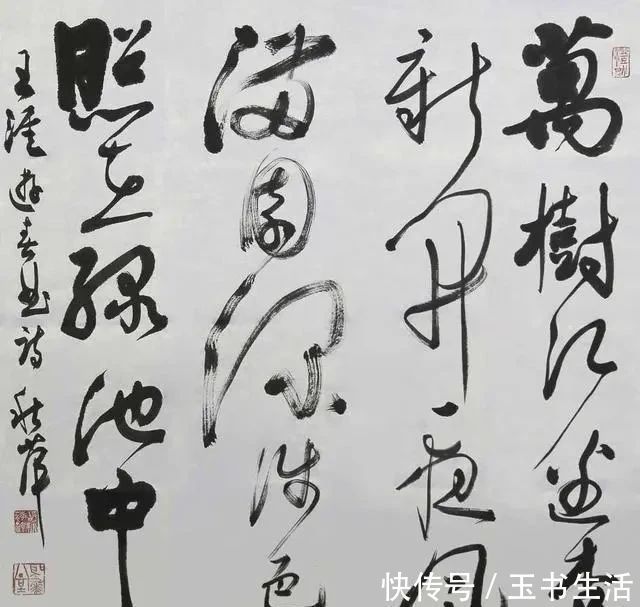 萬樹江邊杏
新開一夜風
滿園深淺色
照在綠池中
王涯遊春曲詩
快传号 / 玉书生活